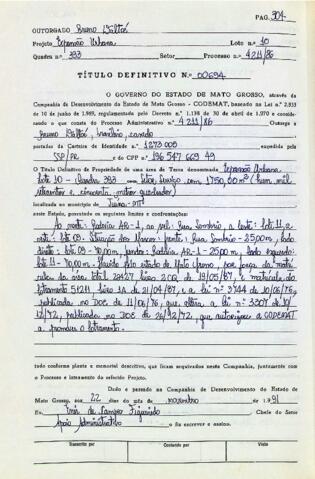 PAG. 304
OUTORGADO Bruno Daltoé
Projeto Expansão Urbana Lote n.o 10
Quadra n.o 393 Setor Processo n.o 4211/86
TÍTULO DEFINITIVO N.o 00694
O GOVERNO DO ESTADO DE MATO GROSSO, através da
Companhia de Desenvolvimento do Estado de Mato Grosso - CODEMAT, baseado na Lei n.o
10 de junho de regulamentado pelo Decreto n.o 1.138 de 30 de abril de 1.970 e considerando
o que consta do Processo Administrativo n.o 4211/86 Outorga a
Bruno Daltoé, brasileiro, casado
portador da Carteira de Identidade n.o 1273008
SSP/PR e do CPF n.o 196 547 669 49
Título Definitivo de Propriedade de uma área de Terra denominada Expansão Urbana
lote 10 - Quadra 393 com 1.750,00 m² (hum mil
setecentos e cinquenta metros quadrados)
localizada no município de Juina-MT
neste Estado, possuindo os seguintes limites e confrontações:
Ao norte: Rodovia AR-1, ao sul: Rua Sombrio, a leste: lote 11, a
oeste: lote 09. Situação dos Marcos: frente: Rua Sombrio - 25,00m, lado
direito: lote 09 - 70,00m, fundos: Rodovia AR-1 - 25,00m, lado esquerdo:
lote 11 - 70,00m. do estado de Mato Grosso por força da matrí-
cula da área total livro 2CR de 19/05/87, e matrícula do
loteamento 51211 livro 1A de 21/04/87, e a lei nº 3744 de 10/06/76
publicada no DOE de 11/06/76, que altera a lei nº 3307 de
12/72, publicada no DOE de 26/12/72, que autorizou a CODEMAT
a promover o loteamento.
tudo conforme planta e memorial descritivo, que ficam arquivados nesta Companhia, juntamente com
o Processo e loteamento do referido Projeto.
Dado e passado na Companhia de Desenvolvimento do Estado de
Mato Grosso, aos 22 dias do mês de novembro de 1991
Eu, de Campos Figueiredo Chefe do Setor
Apoio Administrativo o fiz escrever e assino.
Transcrito por Conferido por Visto